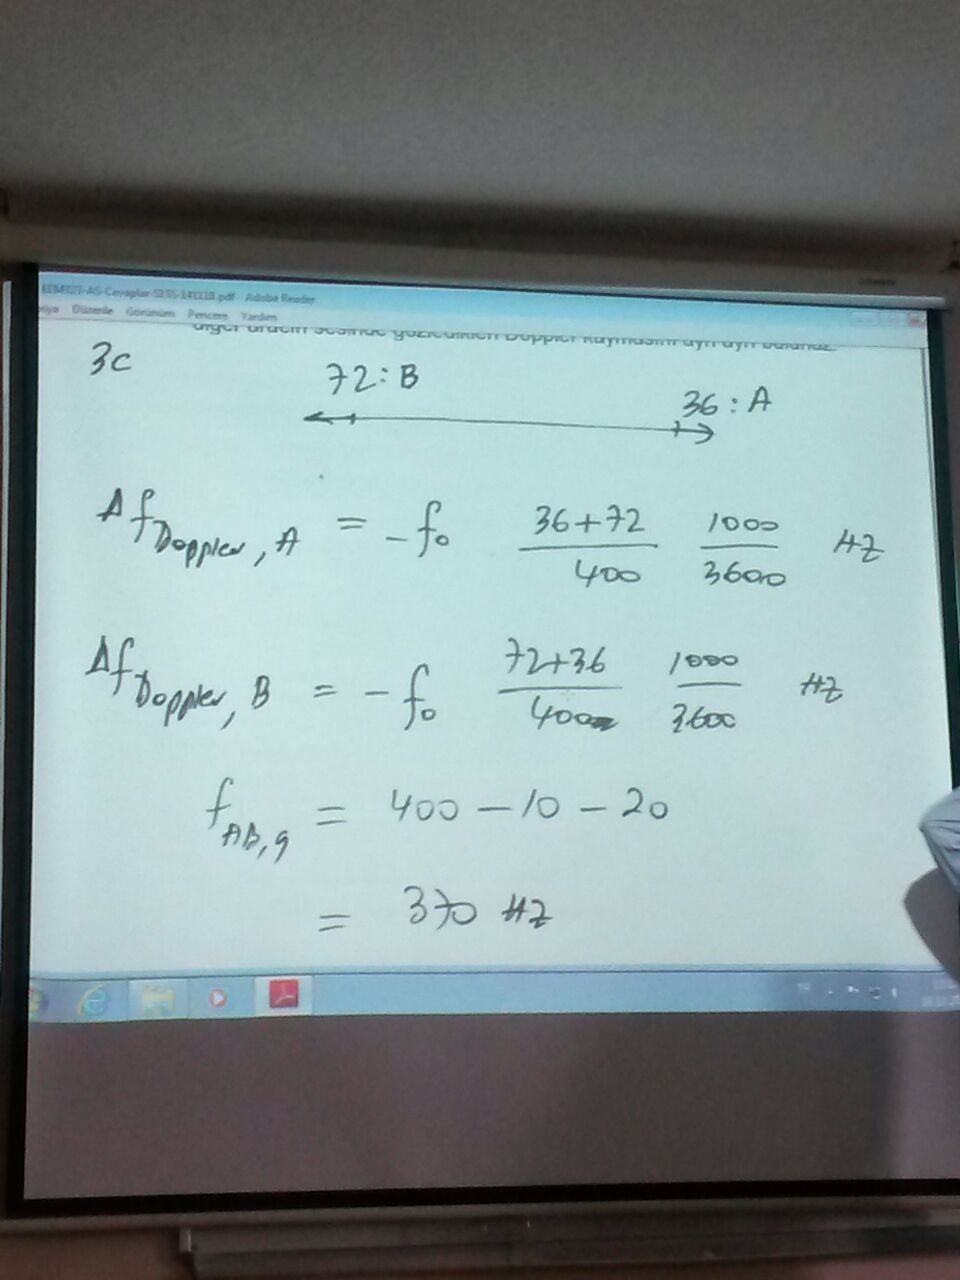 EEM323-AS-Cevaplar-S1S5-141110.pdf - Adobe Reader
Düzenle Görünüm Pencere Yardım
diğer aracın sesinde gözledikleri Doppler kaymasını ayrı ayrı bulunuz.
3c
72 : B
36 : A
Δf Doppler, A = -f₀ 36+72/400 1000/3600 Hz
Δf Doppler, B = -f₀ 72+36/400 1000/3600 Hz
f AB,g = 400 - 10 - 20
= 370 Hz